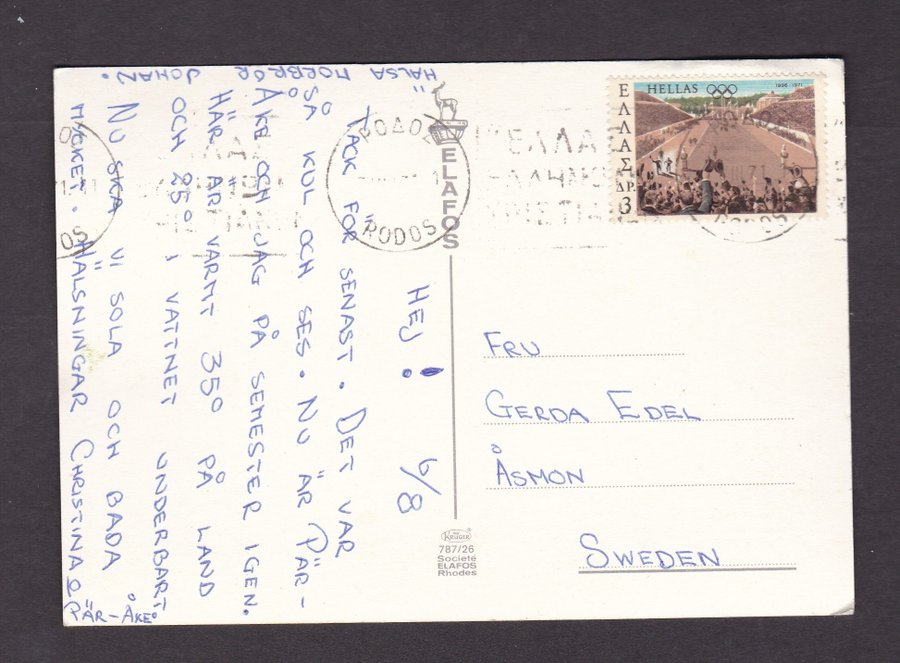 HEJ! 6/8
TACK FÖR SENAST. DET VAR
SÅ KUL OCH SES. NU ÄR PÄR-
ÅKE OCH JAG PÅ SEMESTER IGEN.
HÄR ÄR VARMT 35° PÅ LAND
OCH 25° I VATTNET UNDERBART
NU SKA VI SOLA OCH BADA
MYCKET. HÄLSNINGAR CHRISTINA &
PÄR-ÅKE
HÄLSA MORBROR
JOHAN.
ELAFOS
KRÜGER
787/26
Société
ELAFOS
Rhodes
ΡΟΔΟΣ
RODOS
HELLAS
1896-1971
ΕΛΛΑΣ
ΔΡ.
3
RODOS
FRU
GERDA EDEL
ÅSMON
SWEDEN